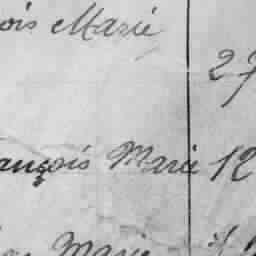 ois Marie
27
ançois Marie 12
Marie